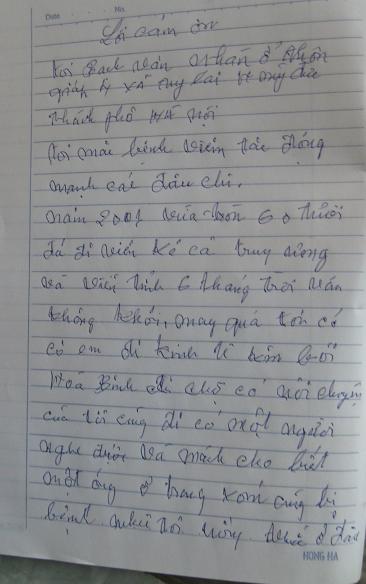 Date No.
Lời cảm ơn
Tôi Bạch văn Nhàn ở thôn
xã ứng
thành phố Hà nội
Tôi mắc bệnh viêm tắc động
mạch các đầu chi.
năm 2001 vừa tròn 60 tuổi
đã đi viện kể cả trung ương
và viện tỉnh 6 tháng trời vẫn
không khỏi, may quá tôi có
cô em đi kinh tế
Hoà Bình đi chợ có nói chuyện
của tôi cũng có một người
nghe được và mách cho biết
một ông ở trong xóm cũng bị
bệnh như tôi ở
HONG HA